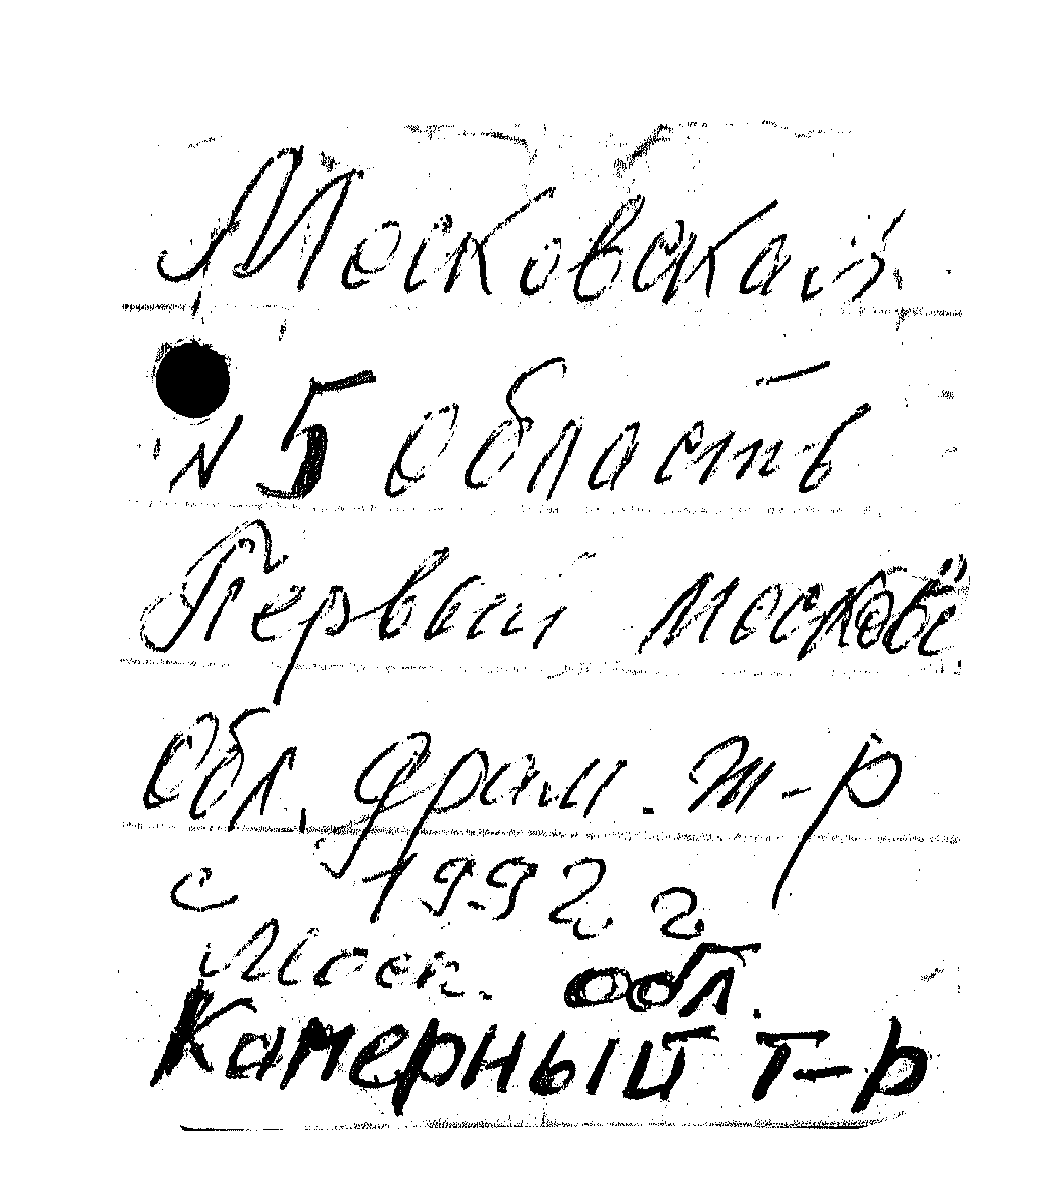 Московская
N 5 область
Первый
Обл. драм. т-р
с 1992 г
Моск. обл.
Камерный т-р